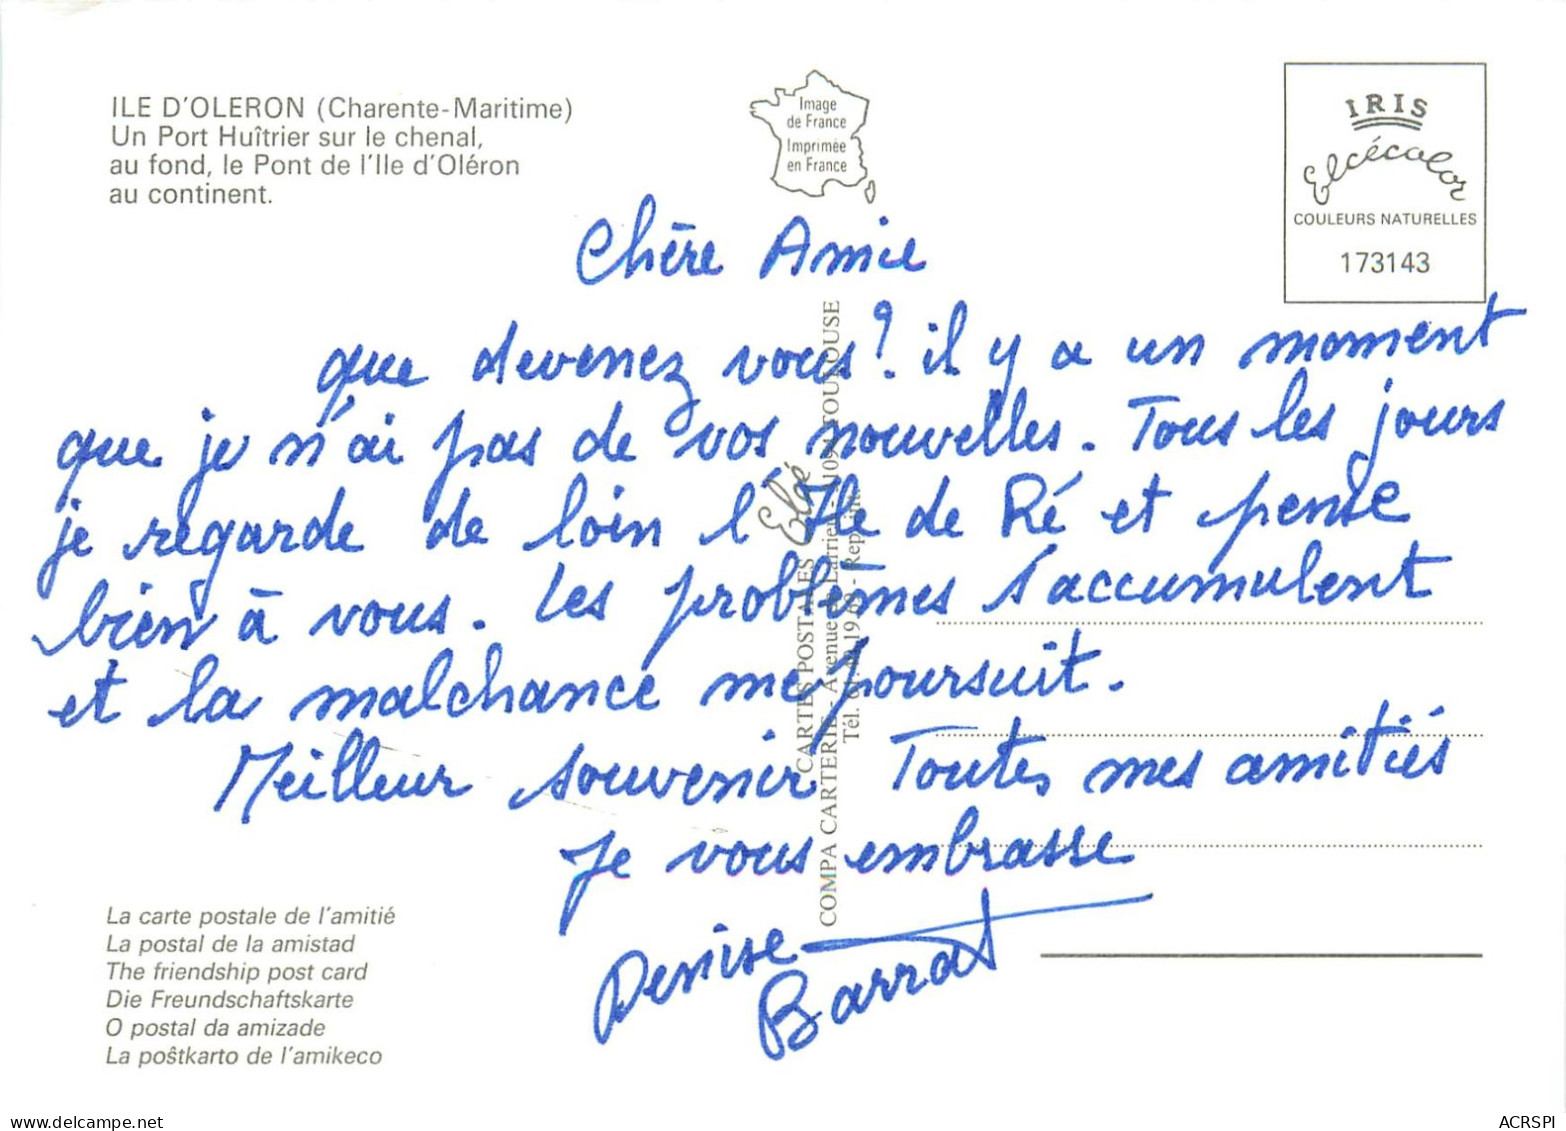 ILE D'OLERON (Charente-Maritime)
Un Port Huîtrier sur le chenal,
au fond, le Pont de l'Ile d'Oléron
au continent.
Image
de France
Imprimée
en France
IRIS
Elcécolor
COULEURS NATURELLES
173143
Chère Amie
que devenez vous? il y a un moment
que je n'ai pas de vos nouvelles. Tous les jours
je regarde de loin l'Ile de Ré et pense
bien à vous. Les problèmes s'accumulent
et la malchance me poursuit.
Meilleur souvenir Toutes mes amitiés
Je vous embrasse
Denise
Barrat
CARTES POSTALES Elcé
COMPA CARTERIE - Avenue de - TOULOUSE
Tél. 61.
La carte postale de l'amitié
La postal de la amistad
The friendship post card
Die Freundschaftskarte
O postal da amizade
La poŝtkarto de l'amikeco
www.delcampe.net
ACRSPI